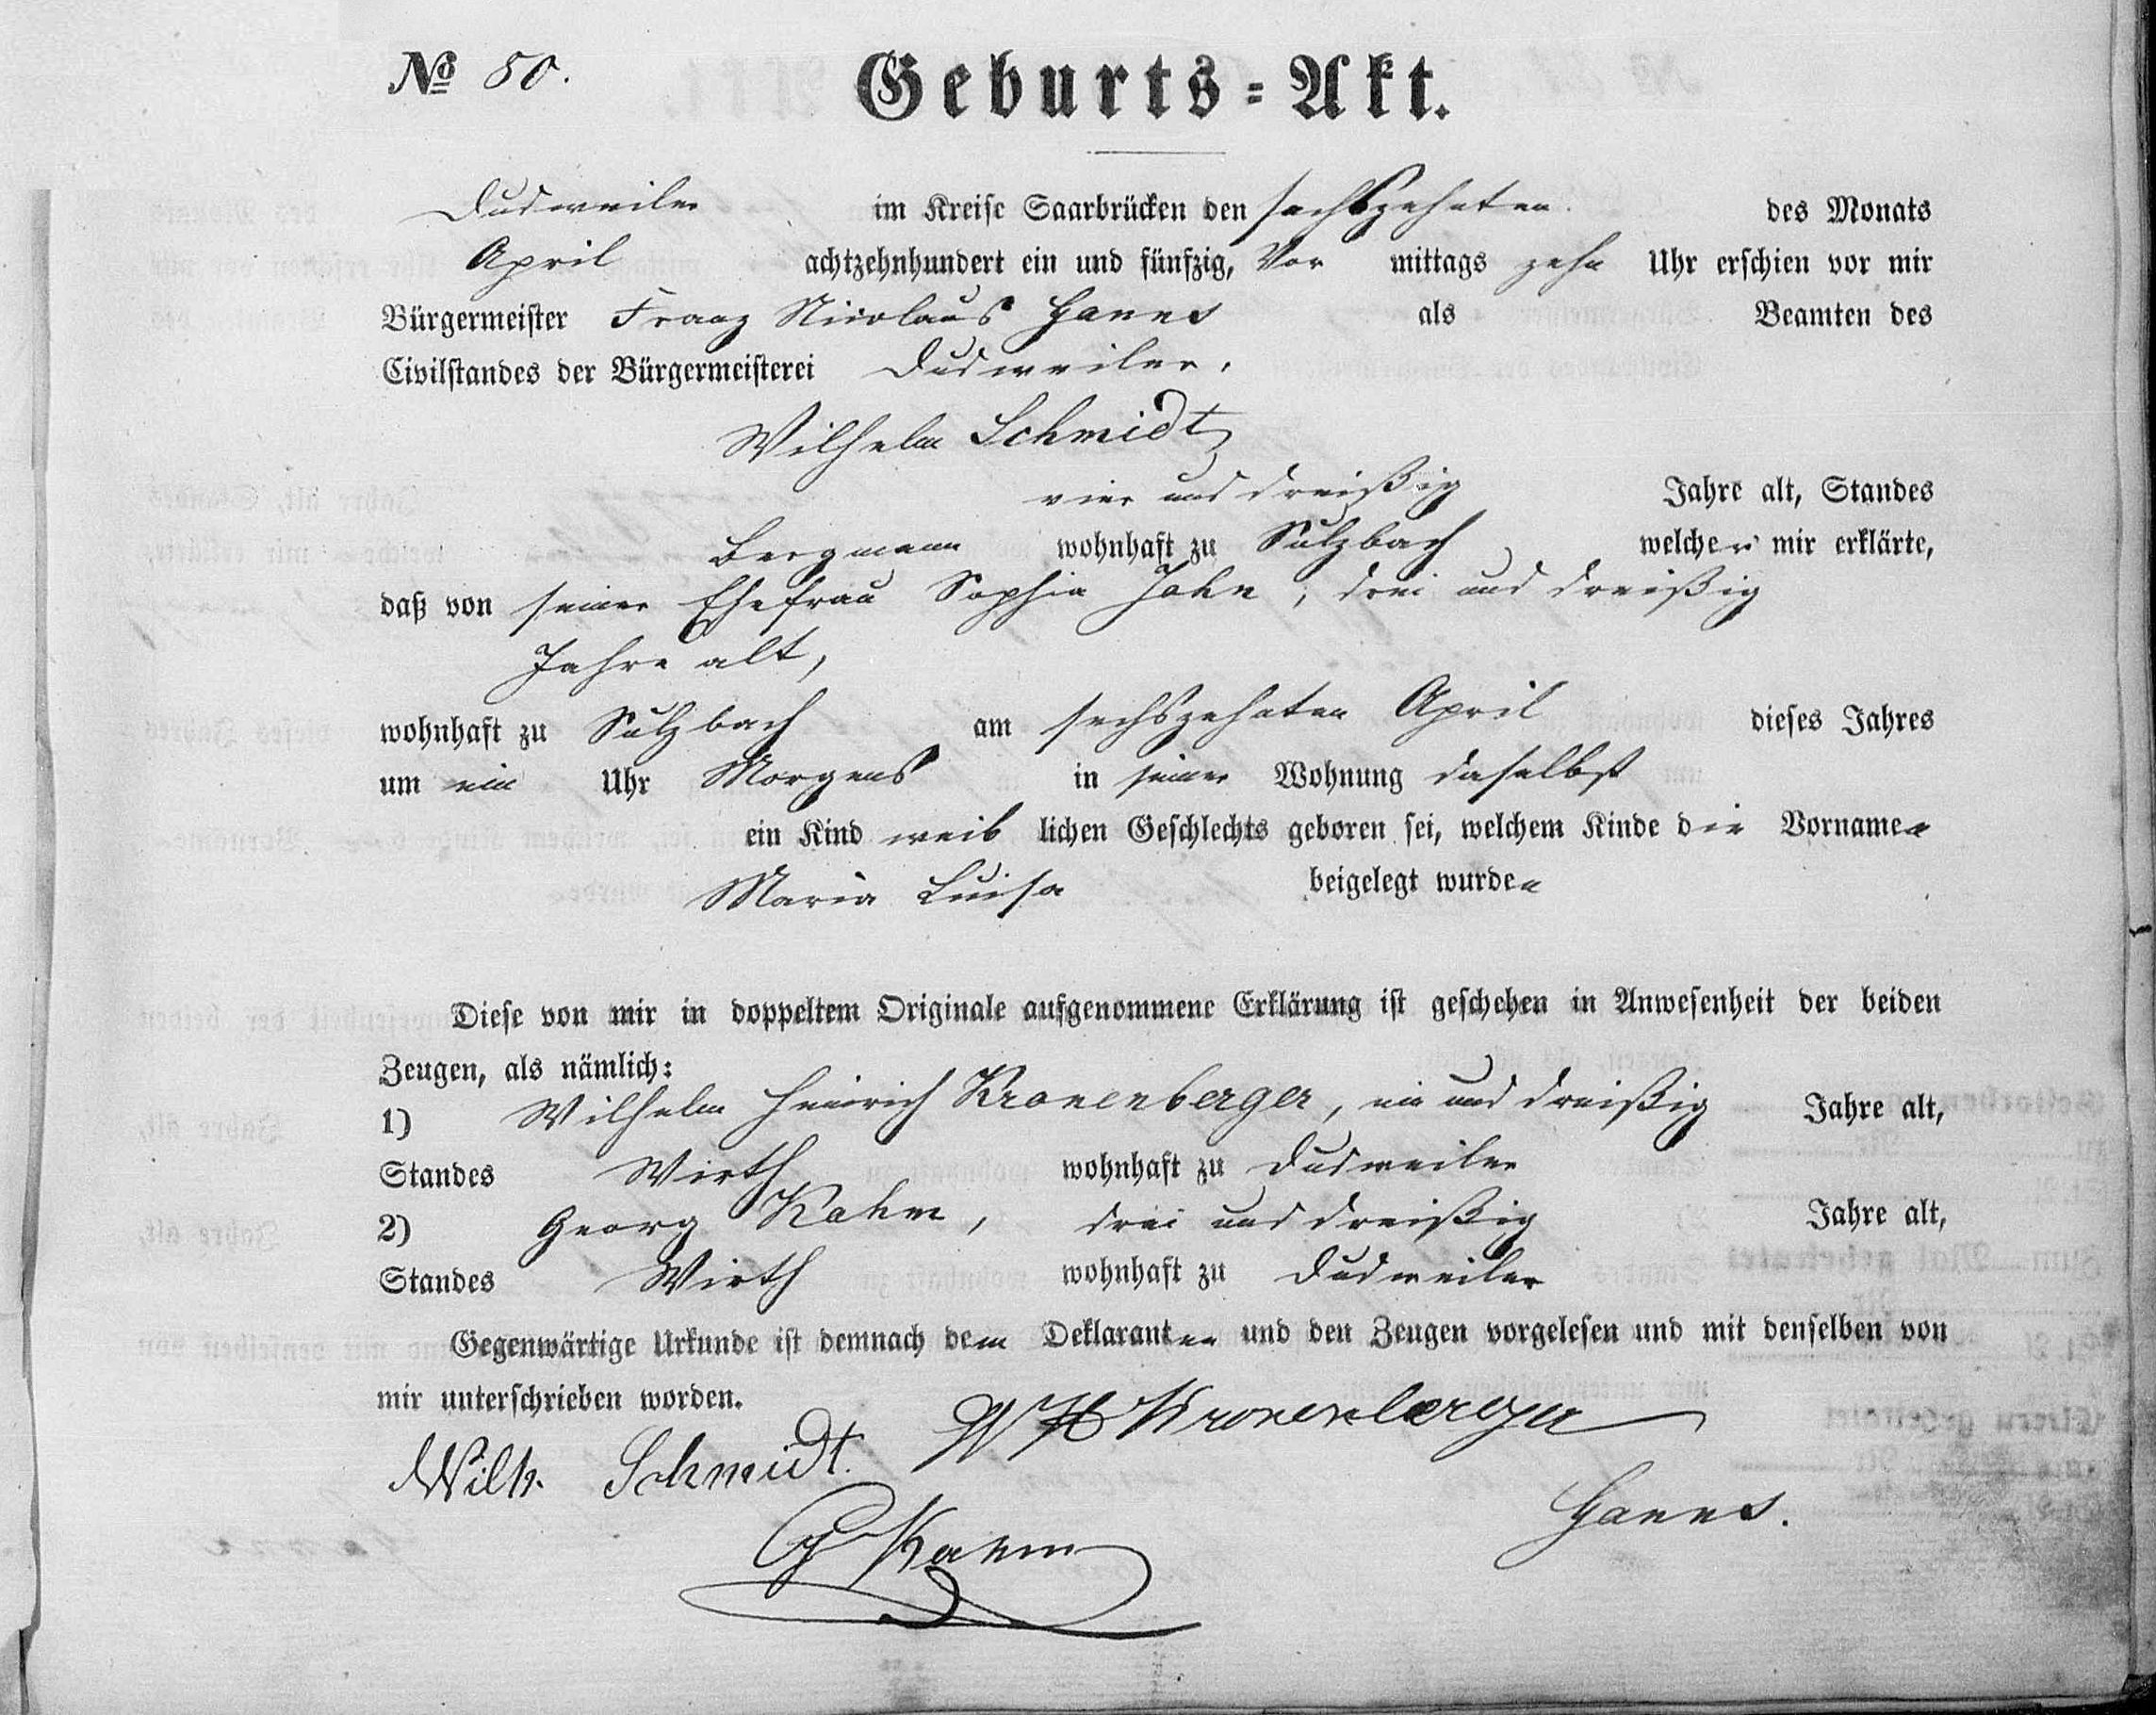 № 50. Geburts-Akt.
Dudweiler im Kreise Saarbrücken den sechszehnten des Monats
April achtzehnhundert ein und fünfzig, Vor mittags zehn Uhr erschien vor mir
Bürgermeister Franz Nicolaus Hanns als Beamten des
Civilstandes der Bürgermeisterei Dudweiler.
Wilhelm Schmidt,
vier und dreißig Jahre alt, Standes
Bergmann wohnhaft zu Sulzbach welcher mir erklärte,
daß von seiner Ehefrau Sophia John, drei und dreißig
Jahre alt,
wohnhaft zu Sulzbach am sechszehnten April dieses Jahres
um ein Uhr Morgens in seiner Wohnung daselbst
ein Kind weib lichen Geschlechts geboren sei, welchem Kinde die Vornamen
Maria Luisa beigelegt wurden
Diese von mir in doppeltem Originale aufgenommene Erklärung ist geschehen in Anwesenheit der beiden
Zeugen, als nämlich:
1) Wilhelm Heinrich Kronenberger, ein und dreißig Jahre alt,
Standes Wirth wohnhaft zu Dudweiler
2) Georg Kahm, drei und dreißig Jahre alt,
Standes Wirth wohnhaft zu Dudweiler
Gegenwärtige Urkunde ist demnach dem Deklaranten und den Zeugen vorgelesen und mit denselben von
mir unterschrieben worden.
Wilh. Schmidt. W H Kronenberger
G Kahm Hanns.